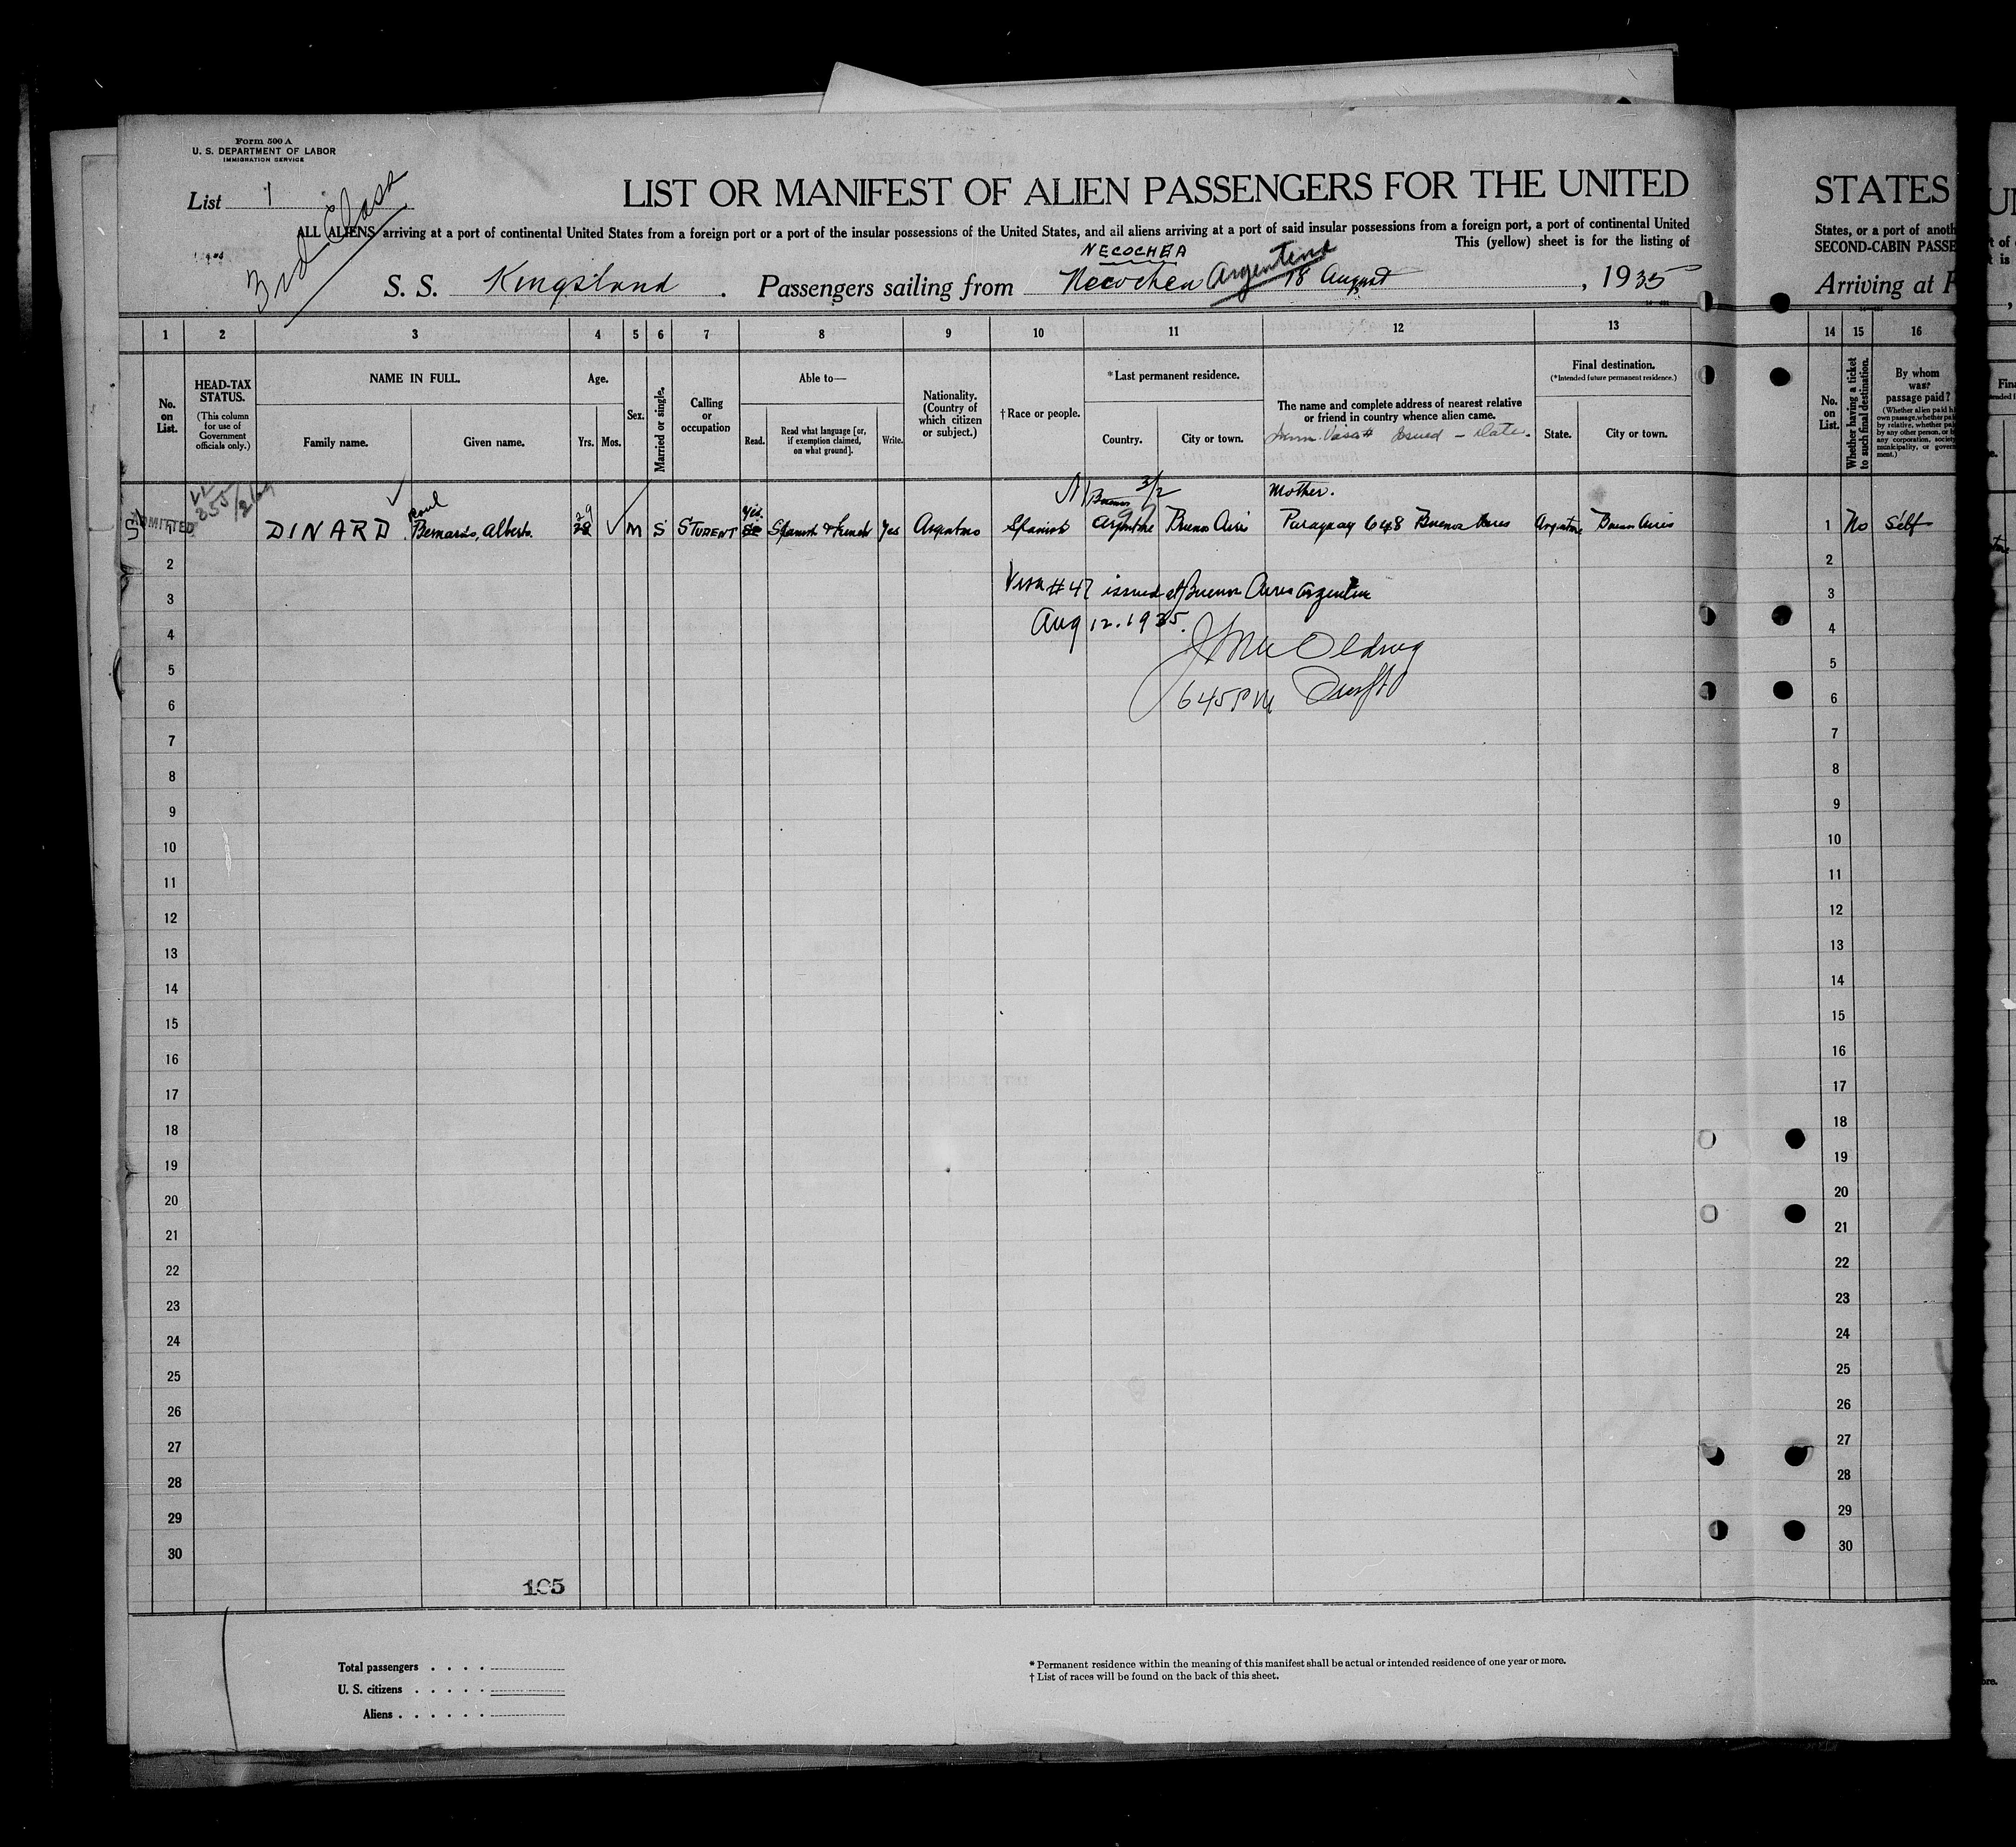 Form 500 A
U. S. DEPARTMENT OF LABOR
IMMIGRATION SERVICE
List 1
3rd Class
LIST OR MANIFEST OF ALIEN PASSENGERS FOR THE UNITED
ALL ALIENS arriving at a port of continental United States from a foreign port or a port of the insular possessions of the United States, and all aliens arriving at a port of said insular possessions from a foreign port, a port of continental United
This (yellow) sheet is for the listing of
NECOCHEA
S. S. Kingsland . Passengers sailing from Necochea Argentina 18 August , 1935
STATES
States, or a port of anoth
SECOND-CABIN PASSE
Arriving at P
1 2 3 4 5 6 7 8 9 10 11 12 13
14 15 16
No. on List.
HEAD-TAX STATUS.
(This column for use of Government officials only.)
NAME IN FULL.
Family name.
Given name.
Age.
Yrs.
Mos.
Sex.
Married or single.
Calling or occupation
Able to—
Read.
Read what language [or, if exemption claimed, on what ground].
Write.
Nationality. (Country of which citizen or subject.)
†Race or people.
*Last permanent residence.
Country.
City or town.
The name and complete address of nearest relative or friend in country whence alien came.
Issued - Date.
Final destination.
(*Intended future permanent residence.)
State.
City or town.
No. on List.
Whether having a ticket to such final destination.
By whom was passage paid?
ADMITTED
29
Yes
3/2
Mother.
1 DINARD Alberto. 28 M S STUDENT Spanish & French Yes Argentino Spanish Argentine Buenos Aires Paraguay 648 Buenos Aires Argentine Buenos Aires
1 No Self
Visa # 47 issued at Buenos Aires Argentina
Aug 12. 1935.
645 PM
2
3
4
5
6
7
8
9
10
11
12
13
14
15
16
17
18
19
20
21
22
23
24
25
26
27
28
29
30
2
3
4
5
6
7
8
9
10
11
12
13
14
15
16
17
18
19
20
21
22
23
24
25
26
27
28
29
30
105
Total passengers
U. S. citizens
Aliens
* Permanent residence within the meaning of this manifest shall be actual or intended residence of one year or more.
† List of races will be found on the back of this sheet.